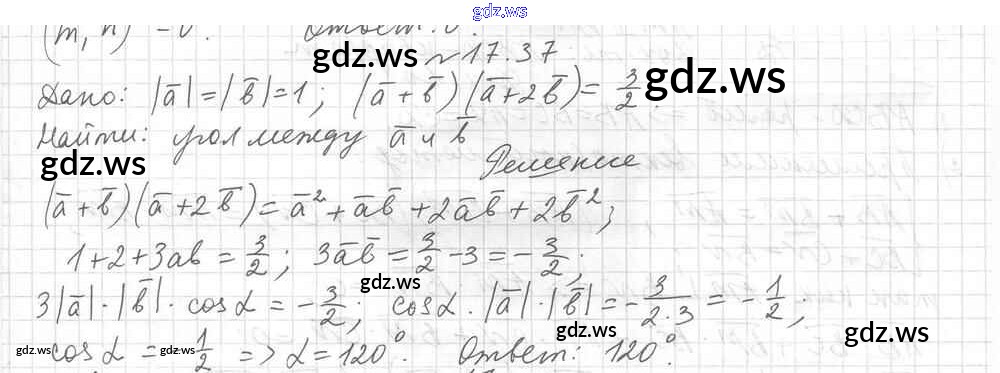 gdz.ws
(m̄, n̄) = 0. Ответ: 0.
gdz.ws №17.37 gdz.ws
Дано: |ā| = |b̄| = 1; (ā + b̄)(ā + 2b̄) = 3/2.
Найти: угол между ā и b̄
gdz.ws Решение
(ā + b̄)(ā + 2b̄) = ā² + āb̄ + 2āb̄ + 2b̄²;
1 + 2 + 3ab = 3/2; 3āb̄ = 3/2 - 3 = -3/2;
gdz.ws
3|ā|·|b̄|· cos α = -3/2; cos α · |ā|·|b̄| = -3/(2·3) = -1/2;
gdz.ws gdz.ws gdz.ws
cos α = -1/2 => α = 120°. Ответ: 120°.